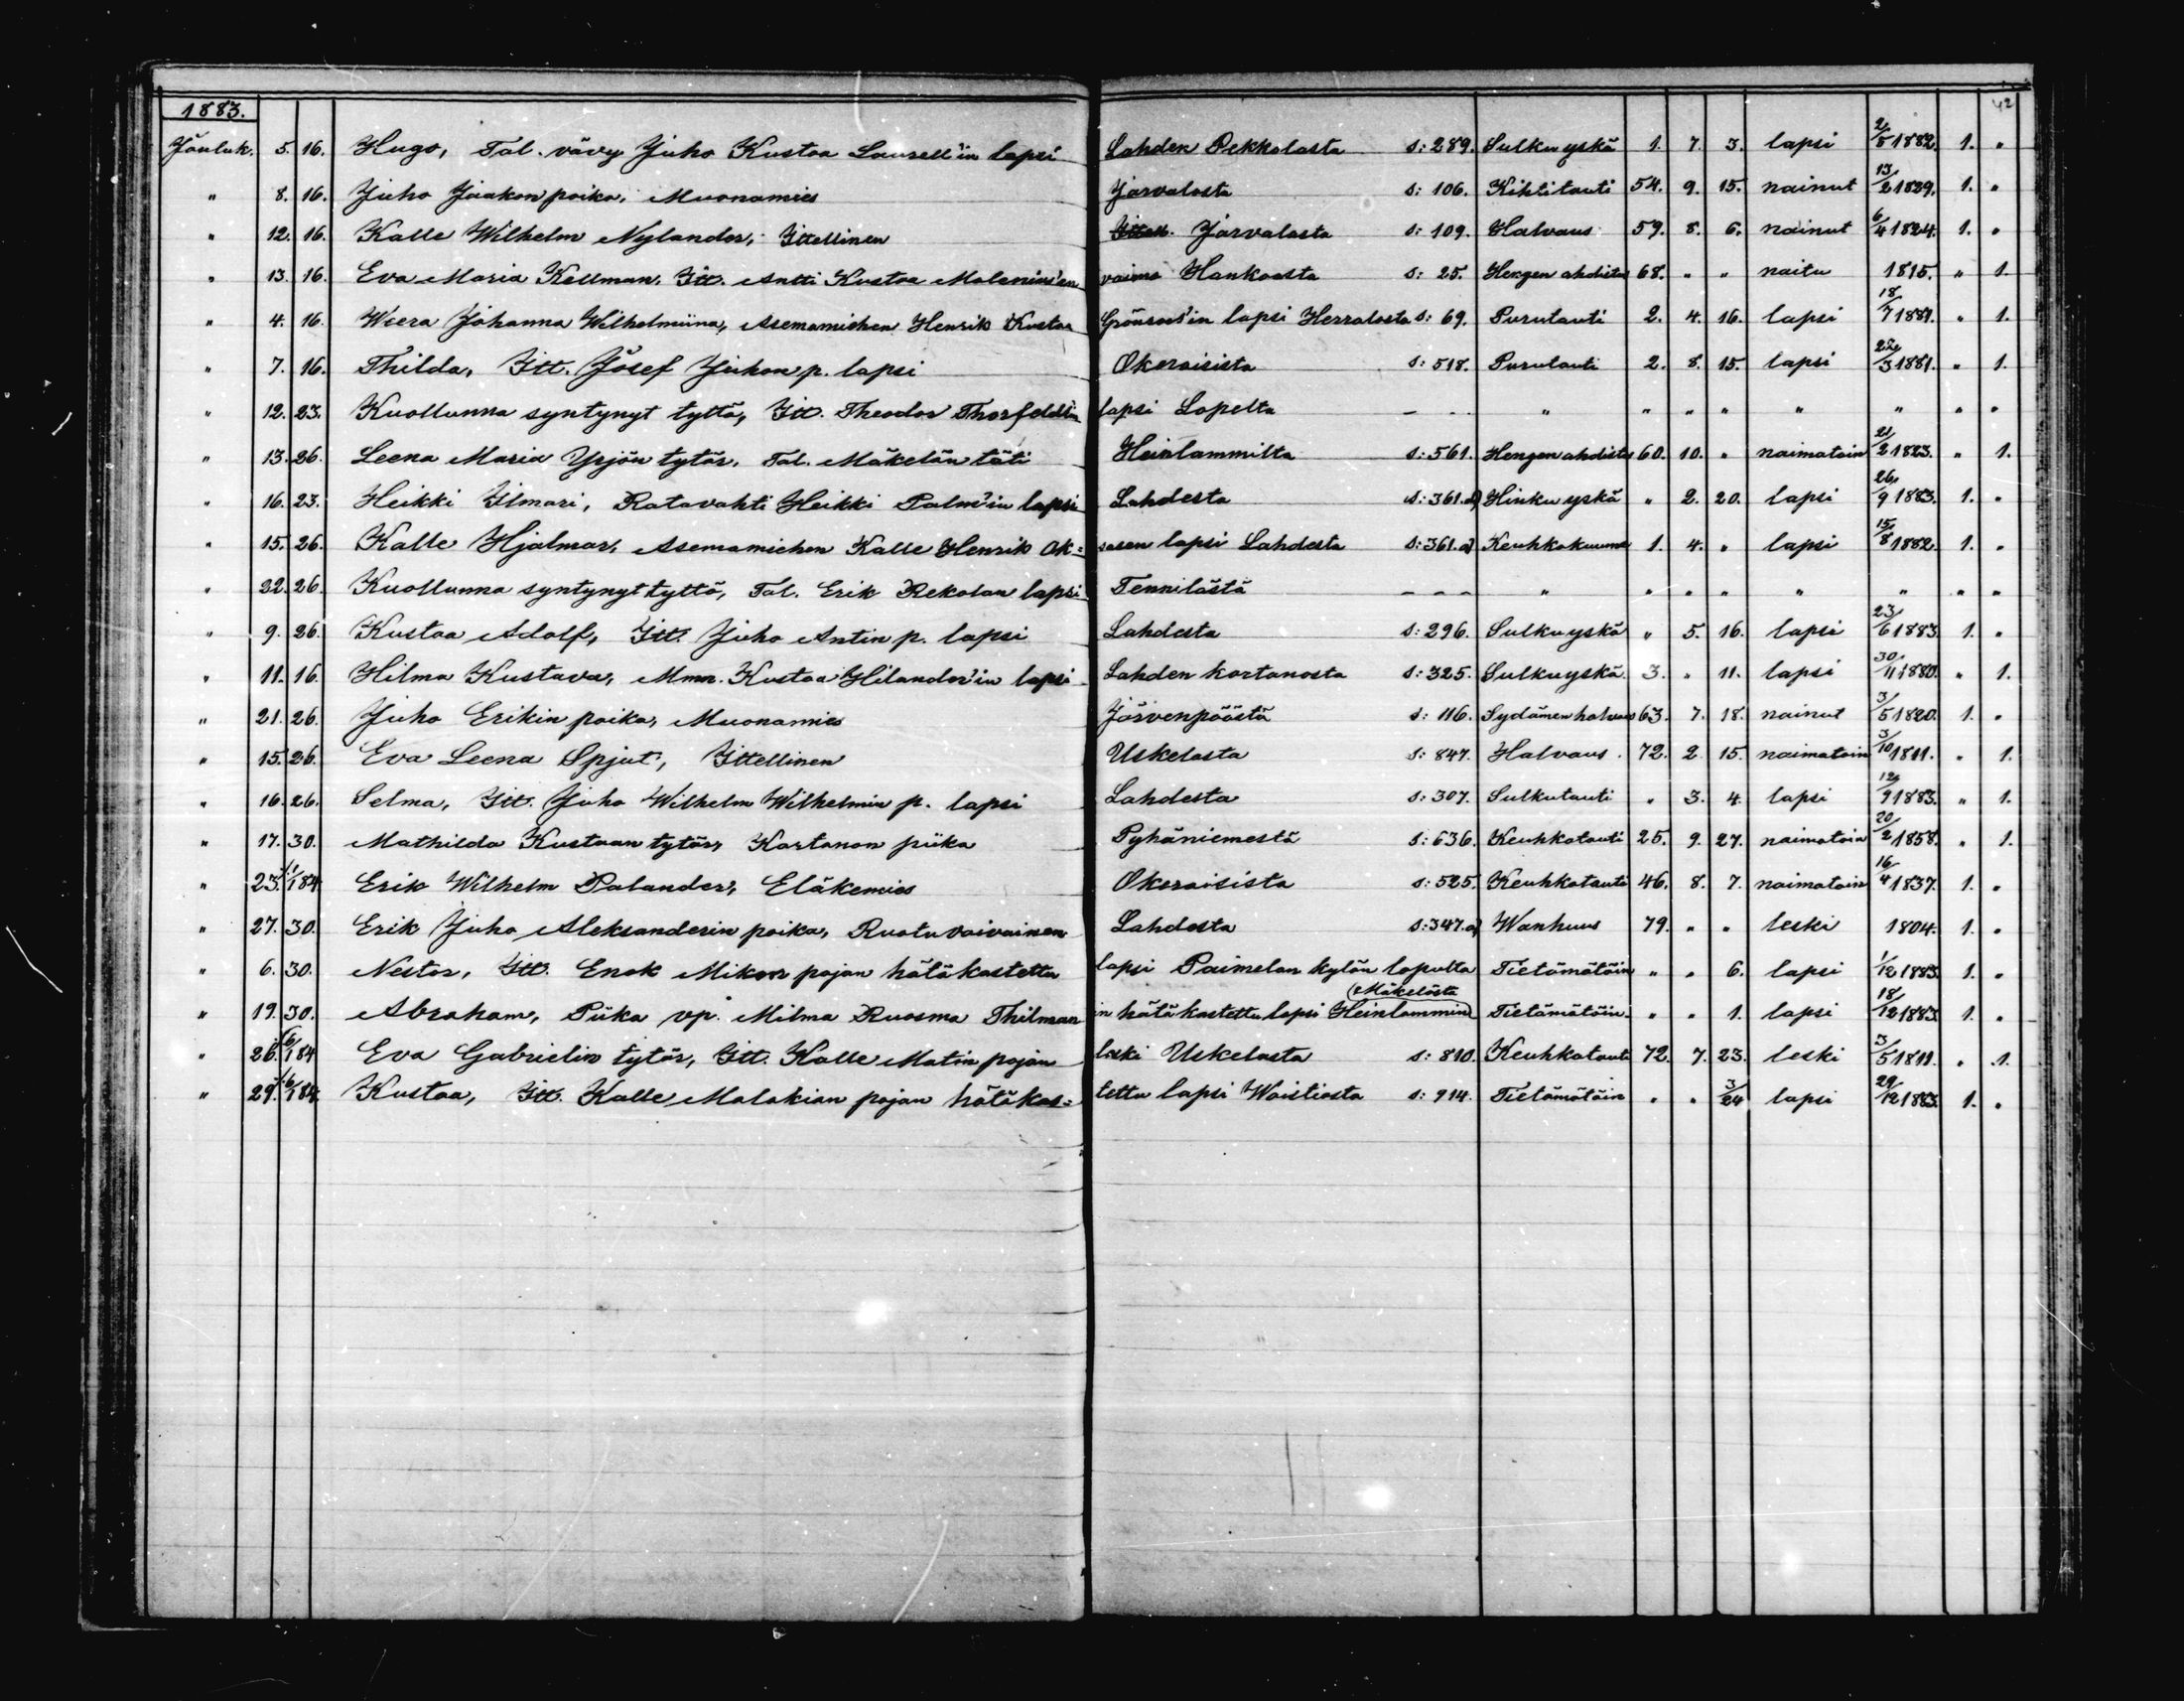 42
1883.
Jouluk. 5. 16. Hugo, Tal. vävy Juho Kustaa Laurell'in lapsi Lahden Pekkalasta s: 289. Sulku yskä 1. 7. 3. lapsi 2/5 1882. 1. "
" 8. 16. Juho Jaakon poika, Muonamies Järvalasta s: 106. Kihtitauti 54. 9. 15. nainut 13/2 1829. 1. "
" 12. 16. Kalle Wilhelm Nylander, Ittellinen Järvalasta s: 109. Halvaus 59. 8. 6. nainut 6/4 1824. 1. "
" 13. 16. Eva Maria Kellman, Itt. Antti Kustaa Malenius'en vaimo Hankaasta s: 25. Hengen ahdistus 68. " " naitu 1815. " 1.
" 4. 16. Weera Johanna Wilhelmiina, Asemamiehen Henrik Kustaa Grönroos'in lapsi Herralasta s: 69. Purutauti 2. 4. 16. lapsi 18/7 1881. " 1.
" 7. 16. Thilda, Itt. Josef Juhon p. lapsi Okeroisista s: 518. Purutauti 2. 8. 15. lapsi 22/3 1881. " 1.
" 12. 23. Kuollunna syntynyt tyttö, Itt. Theodor Thorfeldt'in lapsi Lopelta - - - " " " " " " " "
" 13. 26. Leena Maria Yrjön tytär, Tal. Mäkelän täti Heinlammilta s: 561. Hengen ahdistus 60. 10. " naimatoin 21/2 1823. " 1.
" 16. 23. Heikki Ilmari, Ratavahti Heikki Palm'in lapsi Lahdesta s: 361.d) Hinku yskä " 2. 20. lapsi 26/9 1883. 1. "
" 15. 26. Kalle Hjalmar, Asemamiehen Kalle Henrik Ok= sasen lapsi Lahdesta s: 361.a) Keuhkokuume 1. 4. " lapsi 15/8 1882. 1. "
" 22. 26. Kuollunna syntynyt tyttö, Tal. Erik Rekolan lapsi Tennilästä - - - " " " " " " " "
" 9. 26. Kustaa Adolf, Itt. Juho Antin p. lapsi Lahdesta s: 296. Sulkuyskä " 5. 16. lapsi 23/6 1883. 1. "
" 11. 16. Hilma Kustava, Mmr. Kustaa Hilander'in lapsi Lahden kartanosta s: 325. Sulkuyskä 3. " 11. lapsi 30/11 1880. " 1.
" 21. 26. Juho Erikin poika, Muonamies Järvenpäästä s: 116. Sydämen halvaus 63. 7. 18. nainut 3/5 1820. 1. "
" 15. 26. Eva Leena Spjut, Ittellinen Uskelasta s: 847. Halvaus. 72. 2 15. naimatoin 3/10 1811. " 1.
" 16. 26. Selma, Itt. Juho Wilhelm Wilhelmin p. lapsi Lahdesta s: 307. Sulkutauti " 3. 4. lapsi 12/9 1883. " 1.
" 17. 30. Mathilda Kustaan tytär, Kartanon piika Pyhäniemestä s: 636. Keuhkotauti 25. 9. 27. naimatoin 20/2 1858. " 1.
" 23. 184. Erik Wilhelm Palander, Eläkemies Okeroisista s: 525. Keuhkotauti 46. 8. 7. naimatoin 16/4 1837. 1. "
" 27. 30. Erik Juho Aleksanderin poika, Ruotuvaivainen Lahdesta s: 347.a) Wanhuus 79. " " leski 1804. 1. "
" 6. 30. Nestor, Itt. Enok Mikon pojan hätäkastettu lapsi Paimelan kylän lopulta Tietämätöin " " 6. lapsi 1/12 1883. 1. "
Mäkelästä
" 19. 30. Abraham, Piika vp. Milma Ruosma Thilman in hätäkastettu lapsi Heinlammin Tietämätöin. " " 1. lapsi 18/12 1883. 1. "
" 26. 6/1 84 Eva Gabrielin tytär, Itt. Kalle Matin pojan leski Uskelasta s: 810. Keuhkotauti 72. 7. 23. leski 3/5 1811. " 1.
" 29. 6/1 84. Kustaa, Itt. Kalle Malakian pojan hätäkas= tettu lapsi Woistiosta s: 914. Tietämätöin " " 3/24 lapsi 29/12 1883. 1. "